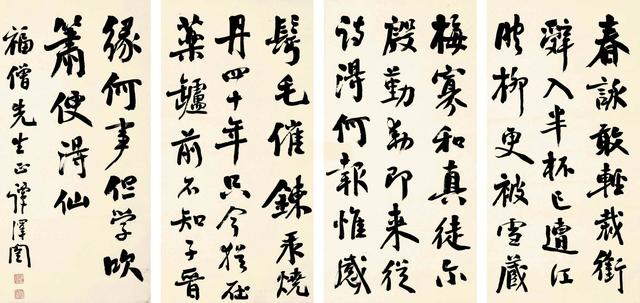 春詠敢輕裁銜
辭入半杯已遭江
映柳更被雪藏
梅寡和真徒尔
殷勤動即来從
詩得何報惟感
髩毛催鍊汞燒
丹四十年只今猶在
藥鑪前不知子晉
緣何事但学吹
簫便得仙
福僧先生正譚澤闓